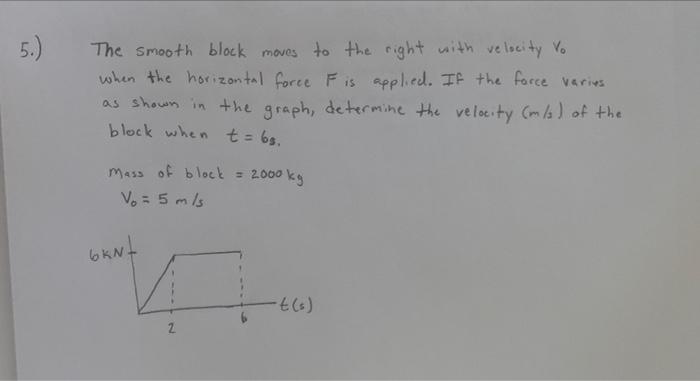 5.) The smooth block moves to the right with velocity V₀
when the horizontal force F is applied. If the force varies
as shown in the graph, determine the velocity (m/s) of the
block when t = 6s.
Mass of block = 2000 kg
V₀ = 5 m/s
6kN
t(s)
2
6